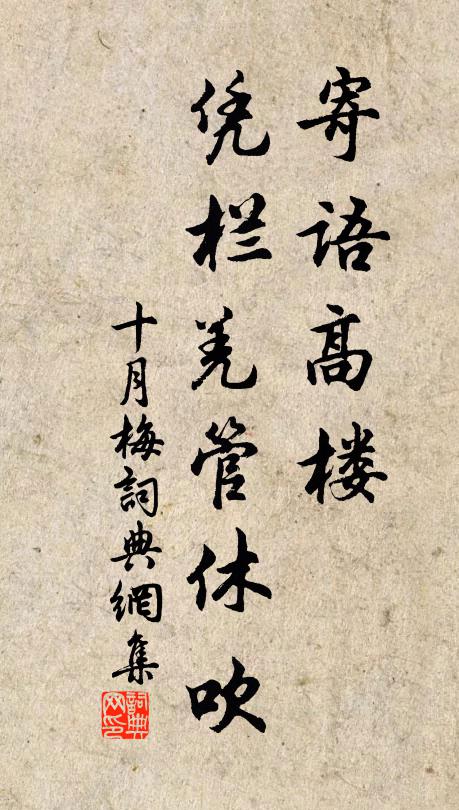 寄语高楼
凭栏羌管休吹
十月梅詞典網集
詞典网印